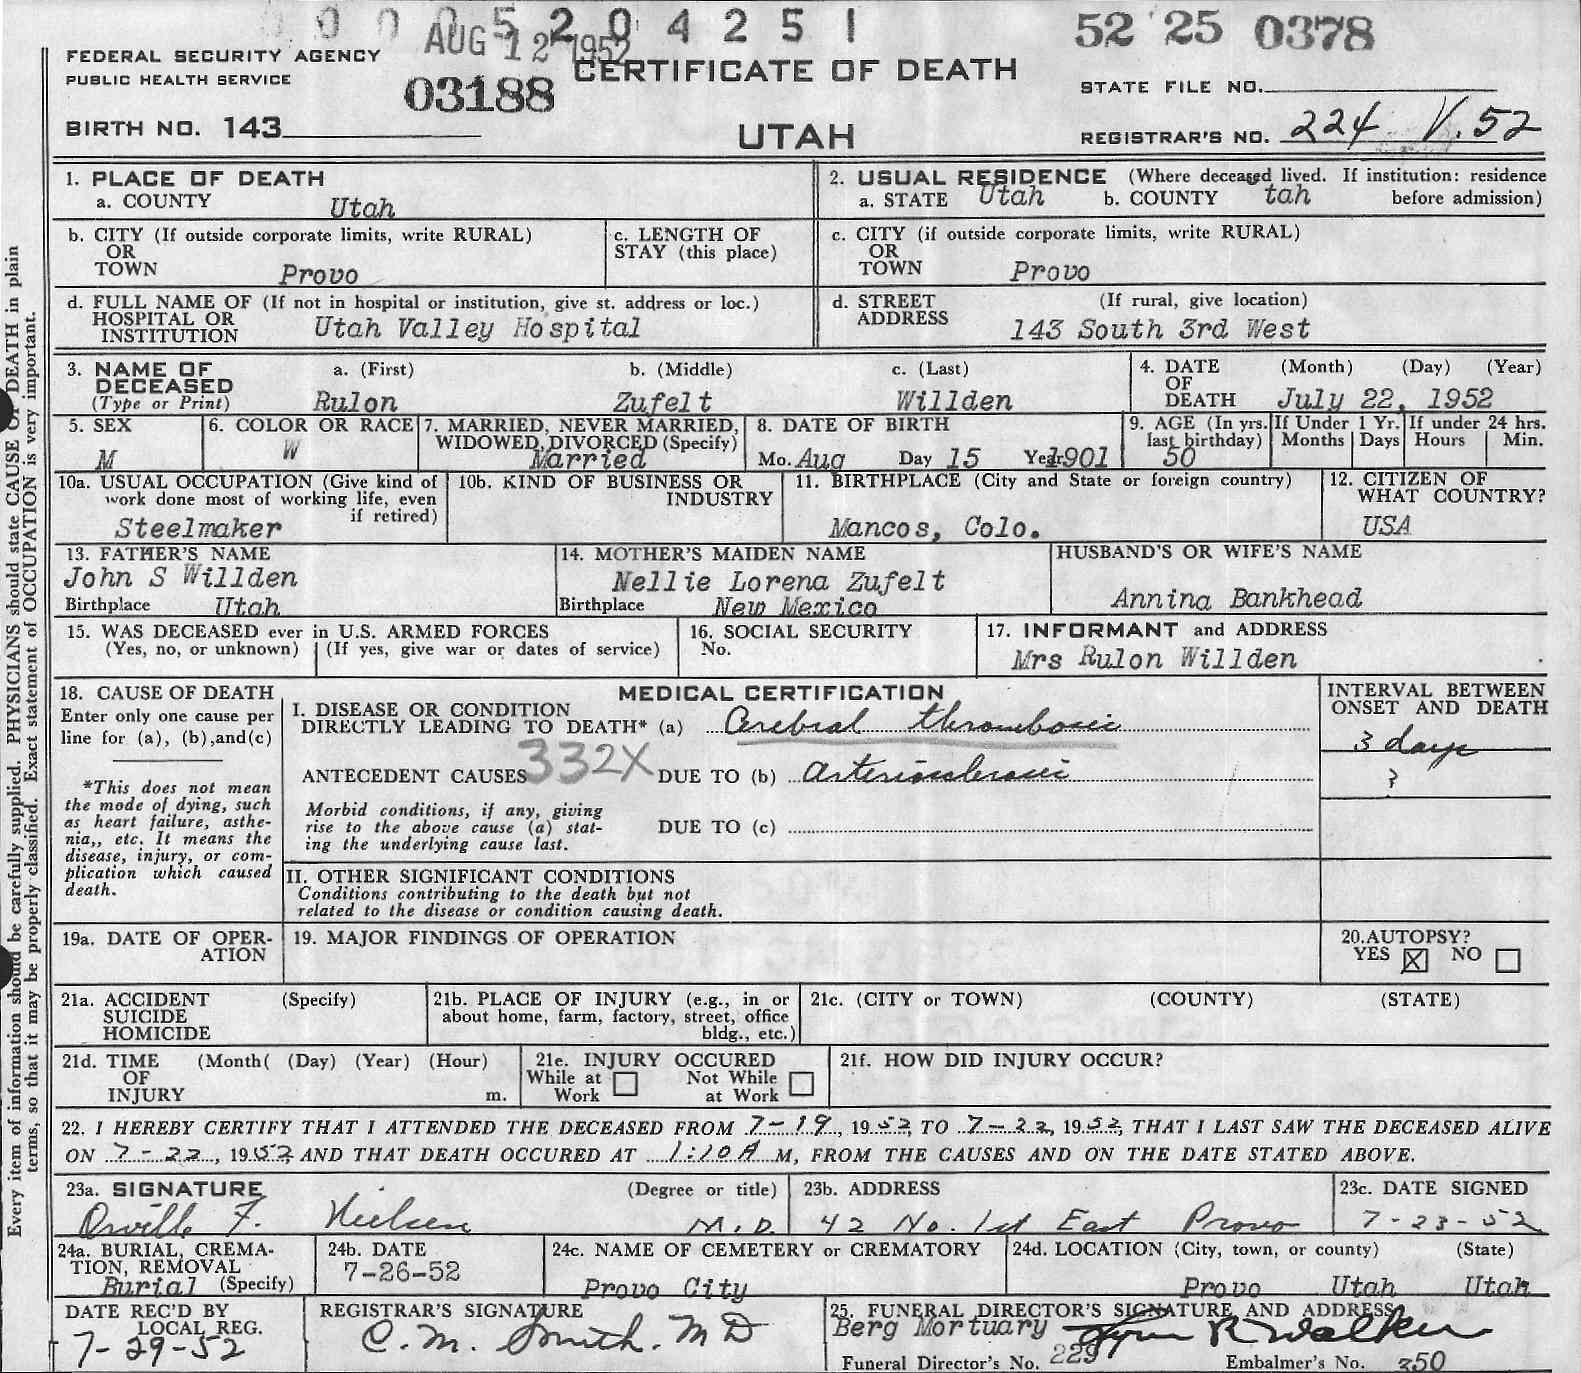 0 0 0 5 2 0 4 2 5 1
AUG 12 1952
52 25 0378
FEDERAL SECURITY AGENCY
PUBLIC HEALTH SERVICE
03188
CERTIFICATE OF DEATH
STATE FILE NO.
BIRTH NO. 143
UTAH
REGISTRAR'S NO. 224 V.52
Every item of information should be carefully supplied. PHYSICIANS should state CAUSE OF DEATH in plain
terms, so that it may be properly classified. Exact statement of OCCUPATION is very important.
1. PLACE OF DEATH
a. COUNTY Utah
2. USUAL RESIDENCE (Where deceased lived. If institution: residence
a. STATE Utah b. COUNTY tah before admission)
b. CITY (If outside corporate limits, write RURAL)
OR
TOWN Provo
c. LENGTH OF
STAY (this place)
c. CITY (if outside corporate limits, write RURAL)
OR
TOWN Provo
d. FULL NAME OF (If not in hospital or institution, give st. address or loc.)
HOSPITAL OR
INSTITUTION Utah Valley Hospital
d. STREET (If rural, give location)
ADDRESS
143 South 3rd West
3. NAME OF DECEASED
(Type or Print)
a. (First) b. (Middle) c. (Last)
Rulon Zufelt Willden
4. DATE OF DEATH (Month) (Day) (Year)
July 22, 1952
5. SEX
M
6. COLOR OR RACE
W
7. MARRIED, NEVER MARRIED,
WIDOWED, DIVORCED (Specify)
Married
8. DATE OF BIRTH
Mo. Aug Day 15 Year 1901
9. AGE (In yrs. last birthday)
50
If Under 1 Yr.
Months Days
If under 24 hrs.
Hours Min.
10a. USUAL OCCUPATION (Give kind of
work done most of working life, even
if retired)
Steelmaker
10b. KIND OF BUSINESS OR
INDUSTRY
11. BIRTHPLACE (City and State or foreign country)
Mancos, Colo.
12. CITIZEN OF
WHAT COUNTRY?
USA
13. FATHER'S NAME
John S Willden
Birthplace Utah
14. MOTHER'S MAIDEN NAME
Nellie Lorena Zufelt
Birthplace New Mexico
HUSBAND'S OR WIFE'S NAME
Annina Bankhead
15. WAS DECEASED ever in U.S. ARMED FORCES
(Yes, no, or unknown) (If yes, give war or dates of service)
16. SOCIAL SECURITY
No.
17. INFORMANT and ADDRESS
Mrs Rulon Willden
18. CAUSE OF DEATH
Enter only one cause per
line for (a), (b),and(c)
*This does not mean
the mode of dying, such
as heart failure, asthe-
nia,, etc. It means the
disease, injury, or com-
plication which caused
death.
MEDICAL CERTIFICATION
I. DISEASE OR CONDITION
DIRECTLY LEADING TO DEATH* (a) Cerebral thrombosis
332X
ANTECEDENT CAUSES DUE TO (b) arteriosclerosis
Morbid conditions, if any, giving
rise to the above cause (a) stat-
ing the underlying cause last.
DUE TO (c)
INTERVAL BETWEEN
ONSET AND DEATH
3 days
?
II. OTHER SIGNIFICANT CONDITIONS
Conditions contributing to the death but not
related to the disease or condition causing death.
19a. DATE OF OPER-
ATION
19. MAJOR FINDINGS OF OPERATION
20.AUTOPSY?
YES NO
21a. ACCIDENT (Specify)
SUICIDE
HOMICIDE
21b. PLACE OF INJURY (e.g., in or
about home, farm, factory, street, office
bldg., etc.)
21c. (CITY or TOWN) (COUNTY) (STATE)
21d. TIME (Month( (Day) (Year) (Hour)
OF
INJURY m.
21e. INJURY OCCURED
While at Work
Not While at Work
21f. HOW DID INJURY OCCUR?
22. I HEREBY CERTIFY THAT I ATTENDED THE DECEASED FROM 7-19, 1952, TO 7-22, 1952, THAT I LAST SAW THE DECEASED ALIVE
ON 7-22, 1952 AND THAT DEATH OCCURED AT 1:10A M, FROM THE CAUSES AND ON THE DATE STATED ABOVE.
23a. SIGNATURE (Degree or title)
Orville F. Nielsen M.D.
23b. ADDRESS
42 No. 1st East Provo
23c. DATE SIGNED
7-23-52
24a. BURIAL, CREMA-
TION, REMOVAL
Burial (Specify)
24b. DATE
7-26-52
24c. NAME OF CEMETERY or CREMATORY
Provo City
24d. LOCATION (City, town, or county) (State)
Provo Utah Utah
DATE REC'D BY
LOCAL REG.
7-29-52
REGISTRAR'S SIGNATURE
C. M. Smith. M D
25. FUNERAL DIRECTOR'S SIGNATURE AND ADDRESS
Berg Mortuary Lynn R Walker
Funeral Director's No. 229 Embalmer's No. 350